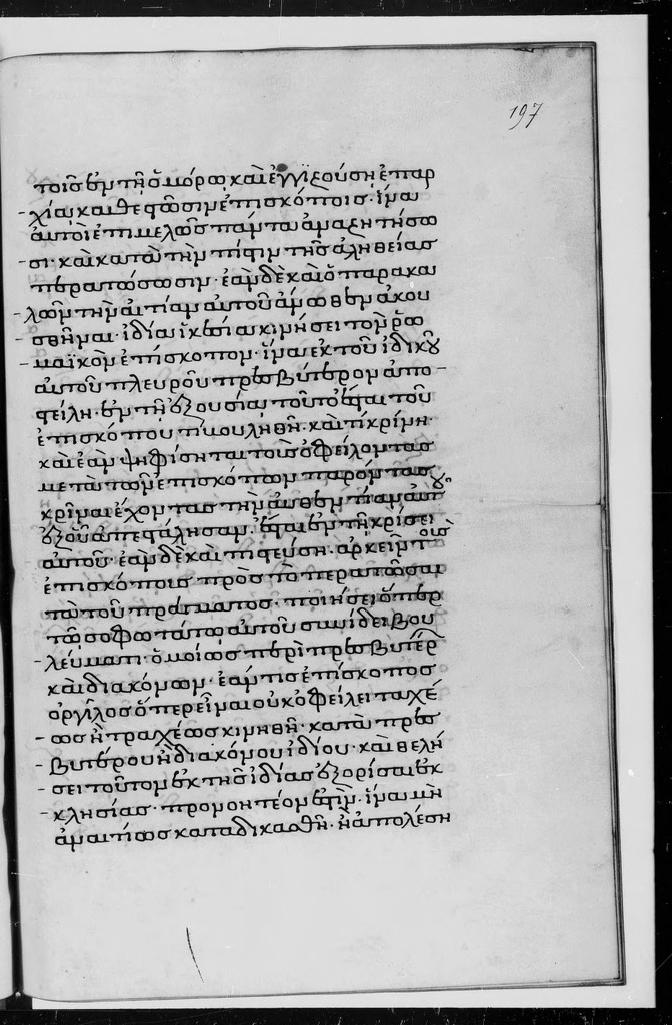 197
τοῖς ἐν τῇ ὁμόρω καὶ ἐγγιζούση ἐπαρ
χία, καὶ θεσπῶσιν ἐπισκόποις· ἵνα
αὐτοὶ ἐπιμελῶς πάντα ἀναζητήσω
σι· καὶ κατὰ τὴν πίστιν τῆς ἀληθείας
περατώσωσιν· ἐὰν δὲ καὶ ὁ παρακα
λῶν τὴν αἰτίαν αὐτοῦ ἄνωθεν ἀκου
σθῆναι· ἰδία ἱκεσία κινήσει τὸν ῥω
μαϊκὸν ἐπίσκοπον· ἵνα ἐκ τοῦ ἰδικοῦ
αὐτοῦ πλευροῦ πρεσβύτερον ἀπο
στείλη· ἐν τῇ ἐξουσία τοῦτο ἔσται τοῦ
ἐπισκόπου τί βουληθῆ· καὶ τί κρίνη·
καὶ ἐὰν ψηφίσηται τοὺς ὀφείλοντας
μετὰ τῶν ἐπισκόπων παρόντας
κρῖναι ἔχοντας τὴν αὐθεντίαν αὐτοῦ
ἐξ οὗ ἀπεστάλησαν· ἔσται ἐν τῇ κρίσει
αὐτοῦ· ἐὰν δὲ καὶ πιστεύση· ἀρκεῖν τοῖς
ἐπισκόποις πρὸς τὸ περατῶσαι
τὰ τοῦ πράγματος· ποιήσει ὅπερ
τῷ σοφωτάτω αὐτοῦ συνίδει βου
λεύματι· ὁμοίως περὶ πρεσβυτέρ
καὶ διακόνων· ἐάν τις ἐπίσκοπος
ὀργίλος ὅπερ εἶναι οὐκ ὀφείλει ταχέ
ως ἢ τραχέως κινηθῆ· κατὰ πρεσ
βυτέρου ἢ διακόνου ἰδίου· καὶ θελή
σει τοῦτον ἐκ τῆς ἰδίας ἐξορίσαι ἐκ
κλησίας· προνοητέον ἐστίν· ἵνα μὴ
ἀναιτίως καταδικασθῆ· ἢ ἀπολέση